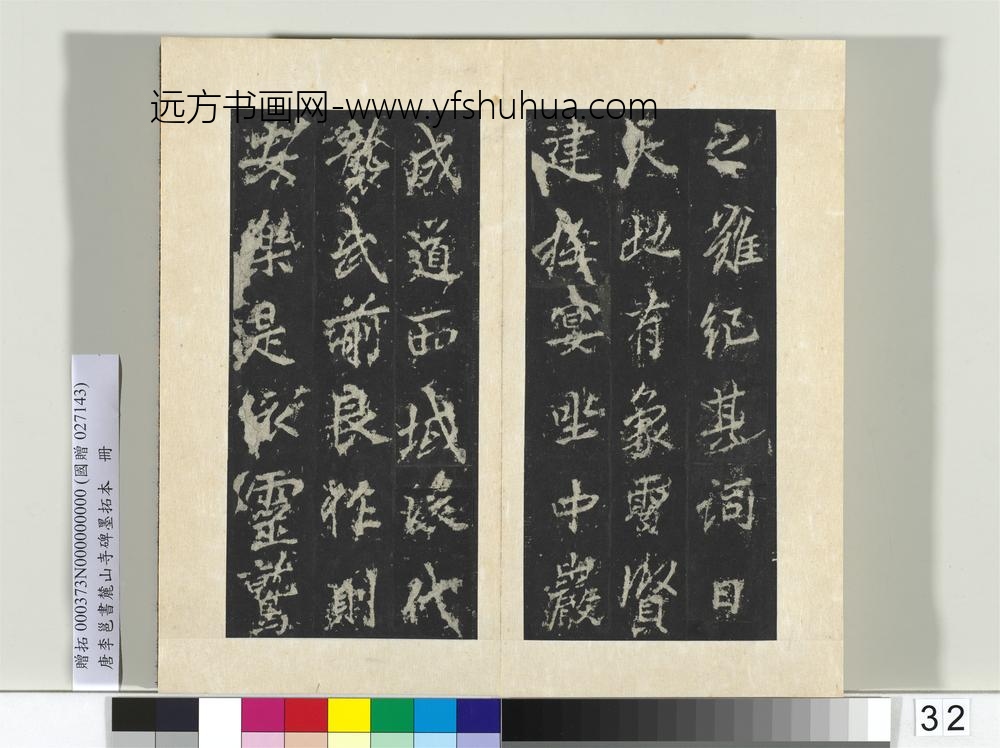 远方书画网-www.yfshuhua.com
之難紀其詞曰
天地有象聖賢
建極宴坐中巖
成道西域後代
襲武前良作則
安樂是依靈鷲
贈拓 000373N000000000 (國贈 027143)
唐李邕書麓山寺碑墨拓本 冊
32